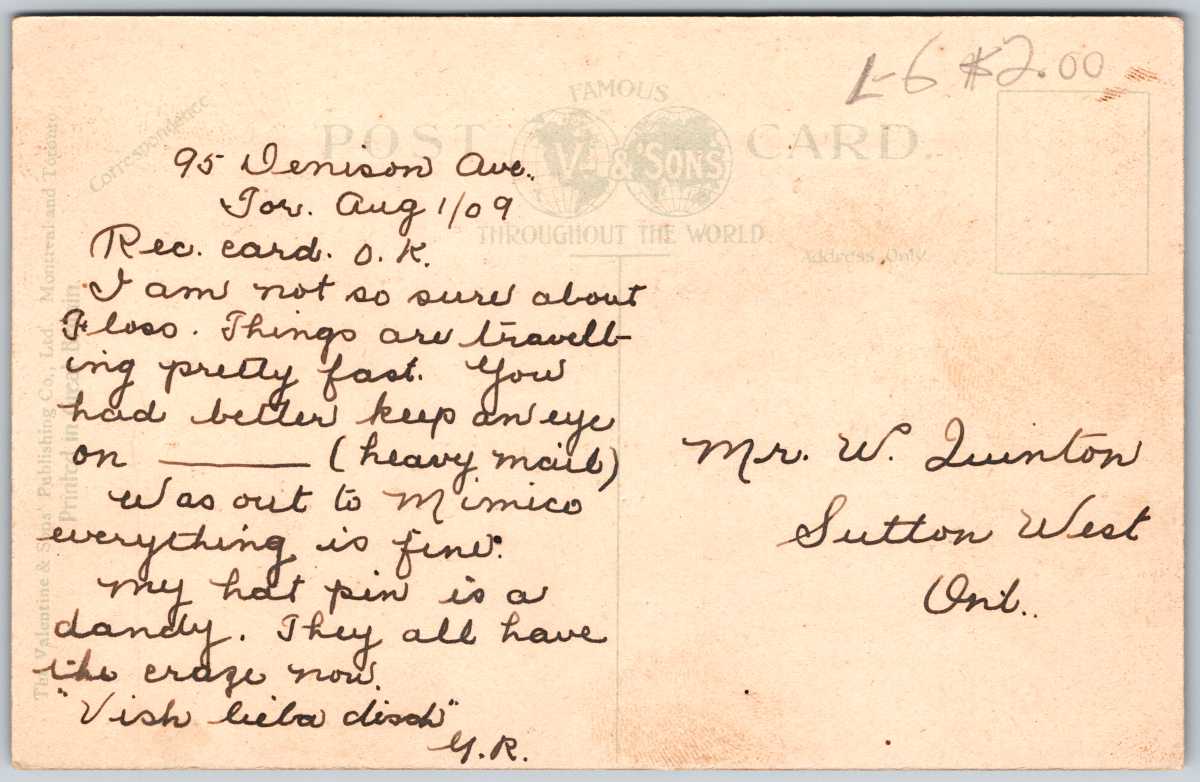 L-6 $2.00
FAMOUS
POST CARD
V. & SONS
THROUGHOUT THE WORLD
Correspondence
Address Only
The Valentine & Sons' Publishing Co., Ltd. Montreal and Toronto
Printed in Great Britain
95 Denison Ave.
Tor. Aug 1/09
Rec. card. O.K.
I am not so sure about
Floss. Things are travell-
ing pretty fast. You
had better keep an eye
on ______ (heavy mail)
Was out to Mimico
everything is fine.
My hat pin is a
dandy. They all have
the craze now.
"Vish lieba disch"
G.R.
Mr. W. Quinton
Sutton West
Ont.